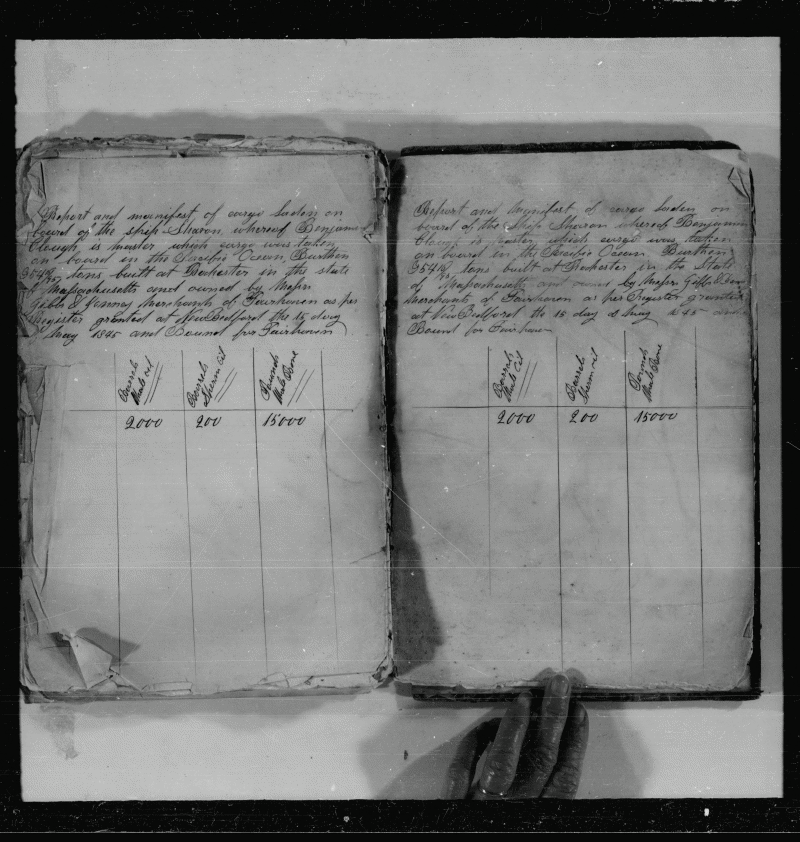 Report and manifest of cargo laden on
board of the ship Sharon whereof Benjamin
Clough is master which cargo was taken
on board in the Pacific Ocean, Burthen
354 tons built at Rochester in the state
of Massachusetts and owned by Messrs
Gibbs & Jenney Merchants of Fairhaven as per
register granted at New Bedford the 15 day
May 1845 and Bound for Fairhaven
Barrels Whale oil
Barrels Sperm oil
Pounds Whale Bone
2000 200 15000
Report and Manifest of cargo laden on
board of the Ship Sharon whereof Benjamin
Clough is master which cargo was taken
on board in the Pacific Ocean Burthen
354 tons built at Rochester in the State
of Massachusetts and owned by Messrs Gibbs
Merchants of Fairhaven as per Register granted
at New Bedford the 15 day of May 1845 and
Bound for Fairhaven
Barrels Whale Oil
Barrels Sperm oil
Pounds Whale Bone
2000 200 15000